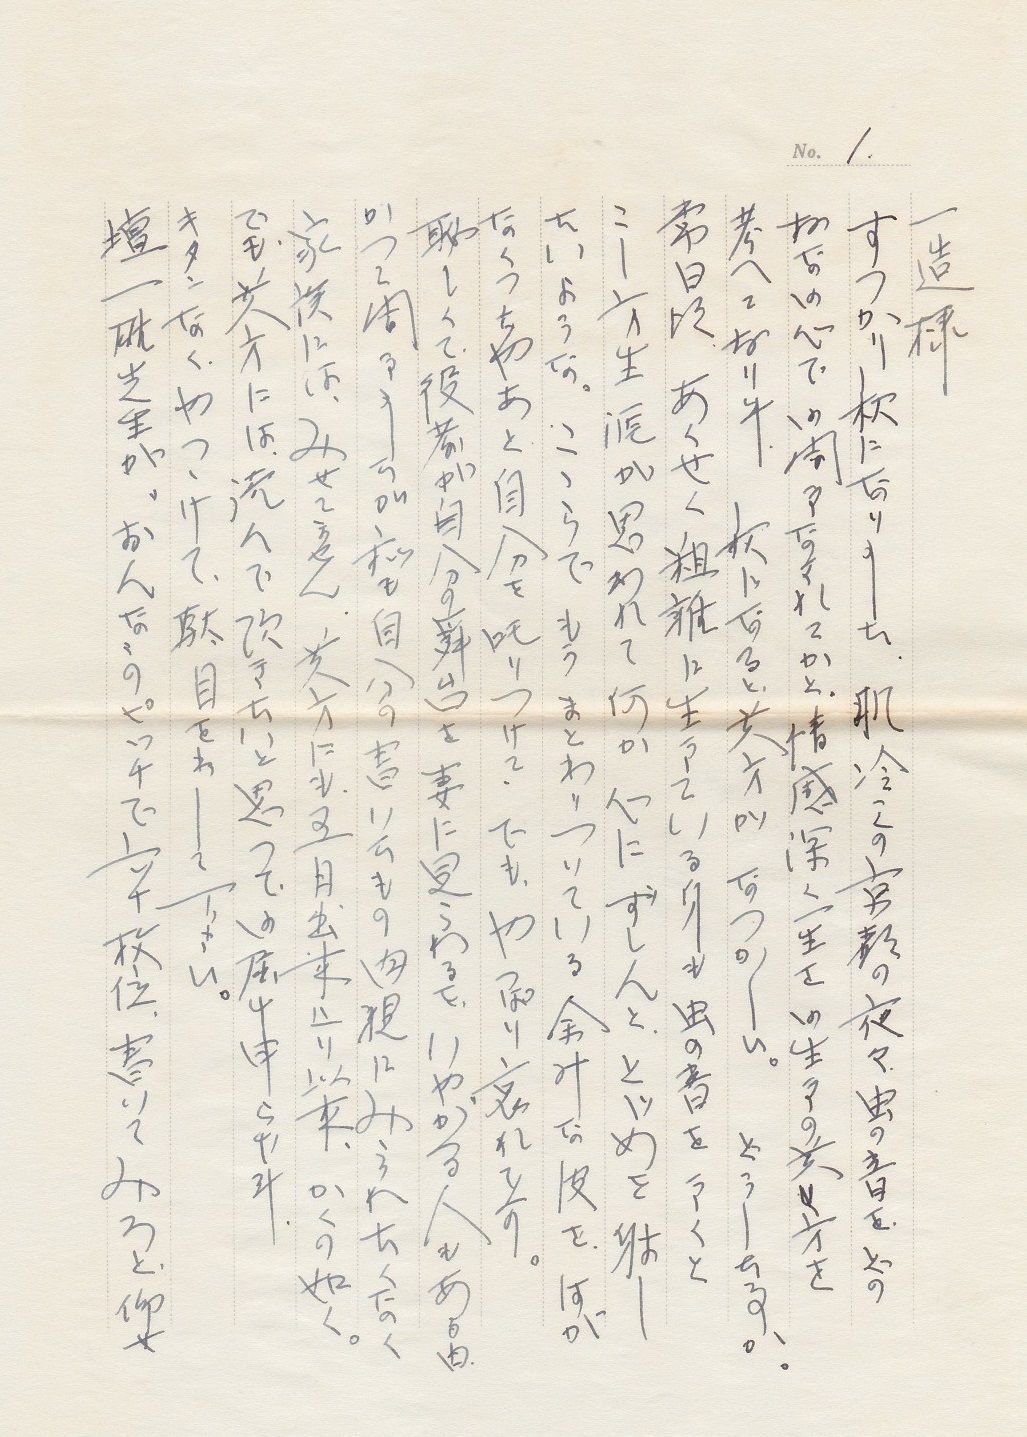 No. 1.
一造様
すつかり秋になりました、肌冷への京都の夜々、虫の音を、どの
おなめ心でお聞きなされてかと、情感深く一生をお生きの貴方を
考へております。秋になると、貴方が なつかしい。どうした事か、。
常日頃、あくせく粗雑に生きている身も虫の音をきくと
こーー方生涯が思われて何か心にずしんと、とどめを射し
たいような。こゝらで もう まとわりついている余計な皮を、はが
なくつちやあと自分を叱りつけて、でも、やつぱり哀れです。
恥しくて、役者が自分の舞台を妻に見られるを、いやがる人もある由、
かつて聞きましたが私も自分の書いたもの肉親にみられたくなく
家族には、みせません、貴方にも、五月出来上り以来、かくの如く。
でも、貴方には、読んで頂きたいと思つては居り申します。
キタンなく、やつゝけて、駄目をおして下さい。
壇一雄先生が、おんなのピッチで六十枚位、書いてみろと、仰せ